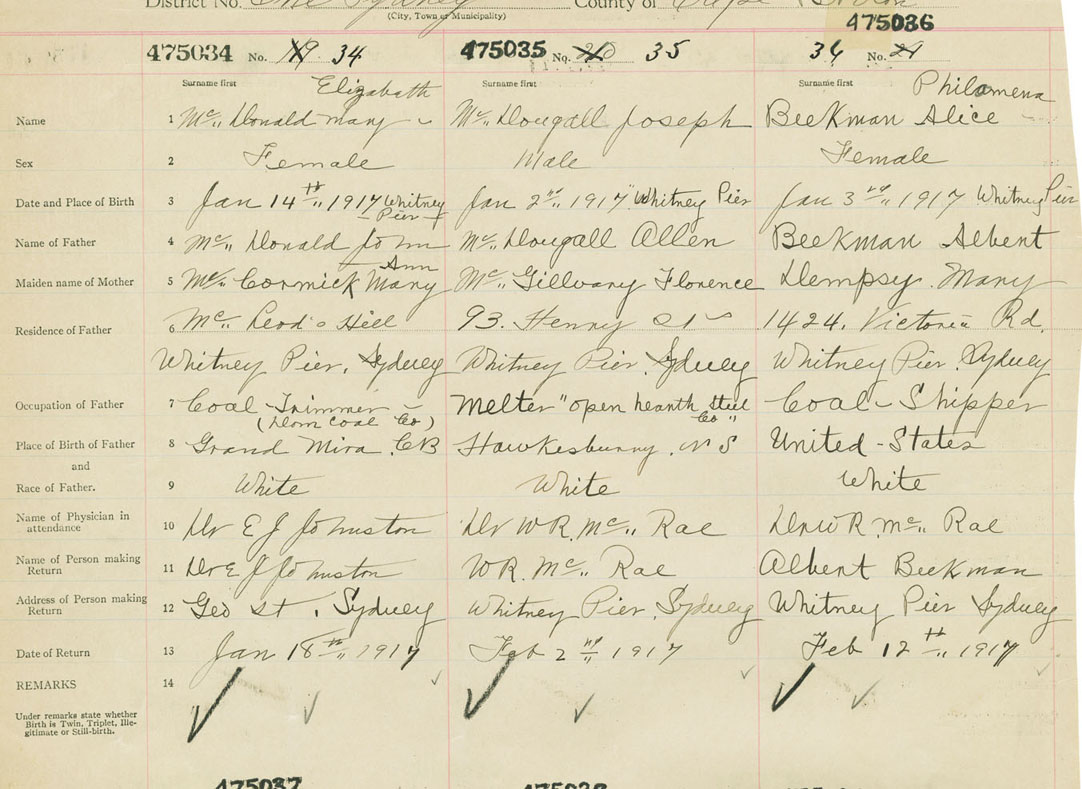 District No. One Sydney County of Cape Breton
(City, Town or Municipality)
475036
475034 No. 19 34 475035 No. 20 35 36 No. 21
Surname first Elizabeth Surname first Surname first Philomena
Name 1 Mc.. Donald Mary Mc.. Dougall Joseph Beekman Alice
Sex 2 Female Male Female
Date and Place of Birth 3 Jan 14th.. 1917 Whitney Pier Jan 2nd.. 1917 Whitney Pier Jan 3rd.. 1917 Whitney Pier
Name of Father 4 Mc.. Donald John Mc.. Dougall Allen Beekman Albert
Maiden name of Mother 5 Mc.. Cormick Mary Ann Mc.. Gillvary Florence Dempsy. Mary
Residence of Father 6 Mc.. Leod's Hill 93. Henry St 1424. Victoria Rd.
Whitney Pier. Sydney Whitney Pier Sydney Whitney Pier. Sydney
Occupation of Father 7 Coal-Trimmer Melter "open hearth Steel Coal-Shipper
(Dom Coal Co) Co"
Place of Birth of Father 8 Grand Mira. CB Hawkesburry. N S United-States
and
Race of Father. 9 White White White
Name of Physician in attendance 10 Dr E J Johnston Dr W R. Mc.. Rae Dr W R. Mc.. Rae
Name of Person making Return 11 Dr E J Johnston W R. Mc.. Rae Albert Beekman
Address of Person making Return 12 Geo St. Sydney Whitney Pier. Sydney Whitney Pier Sydney
Date of Return 13 Jan 18th.. 1917 Feb 2nd.. 1917 Feb 12th.. 1917
REMARKS 14
Under remarks state whether
Birth is Twin, Triplet, Ille-
gitimate or Still-birth.
475037 475038